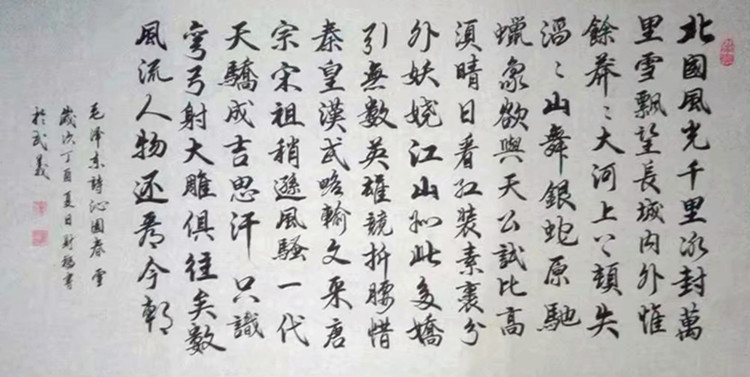 北國風光千里冰封萬
里雪飄望長城內外惟
餘莽〻大河上下頓失
滔〻山舞銀蛇原馳
蠟象欲與天公試比高
須晴日看紅裝素裹分
外妖嬈江山如此多嬌
引無數英雄競折腰惜
秦皇漢武略輸文采唐
宗宋祖稍遜風騷一代
天驕成吉思汗只識
彎弓射大雕俱往矣數
風流人物还看今朝
毛澤東詩沁園春雪
歲次丁酉夏日書
於武義